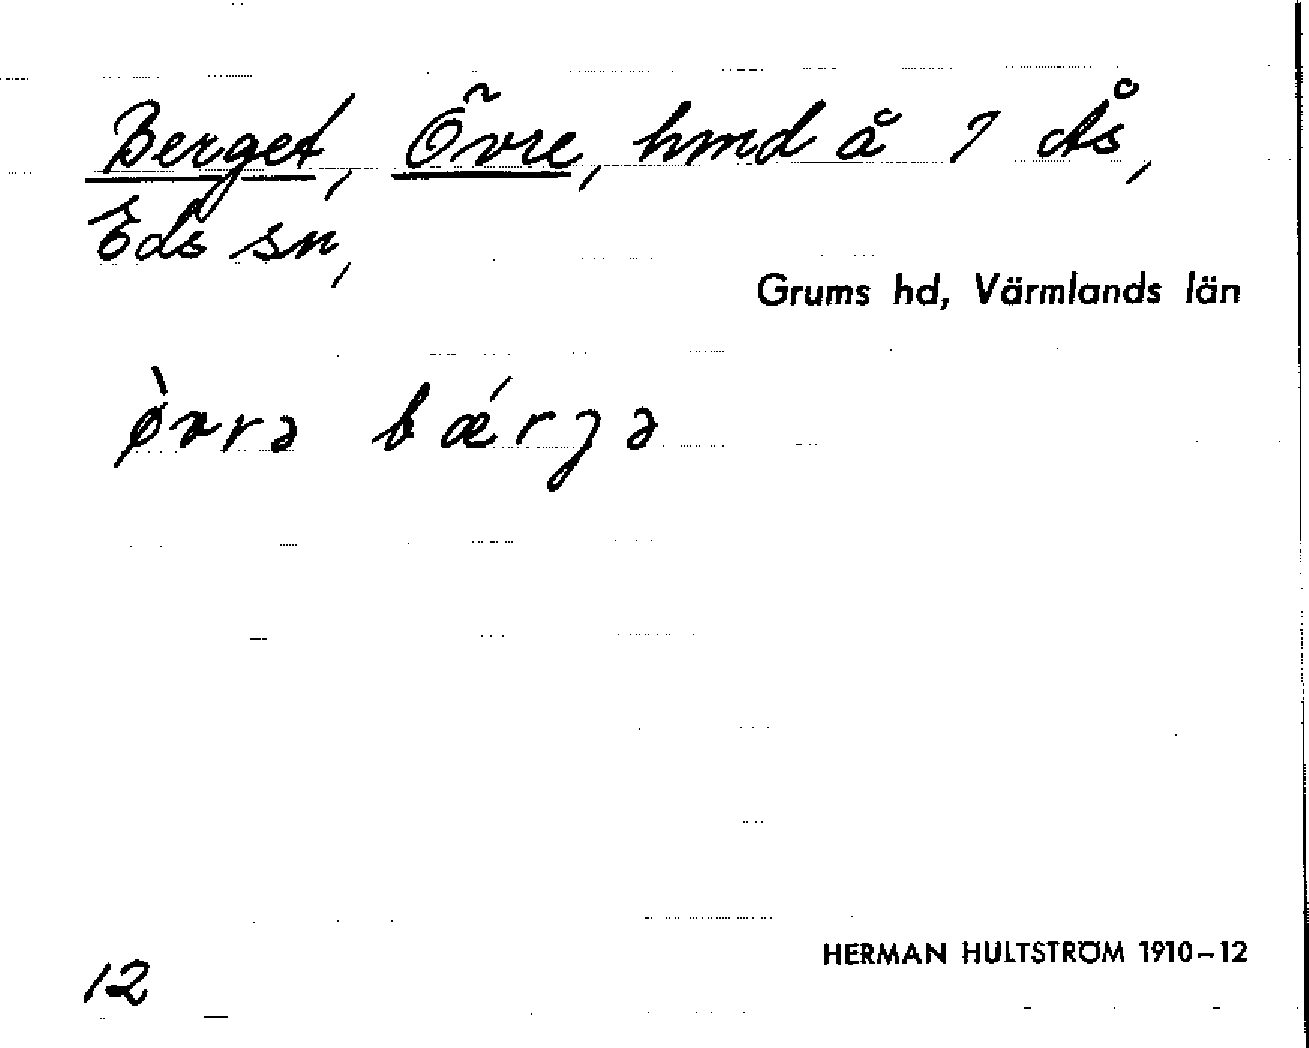 Berget, Övre, hmd å 7 Ås,
Eds sn,
Grums hd, Värmlands län
ø̀vrə bǽrjə
12
HERMAN HULTSTRÖM 1910–12